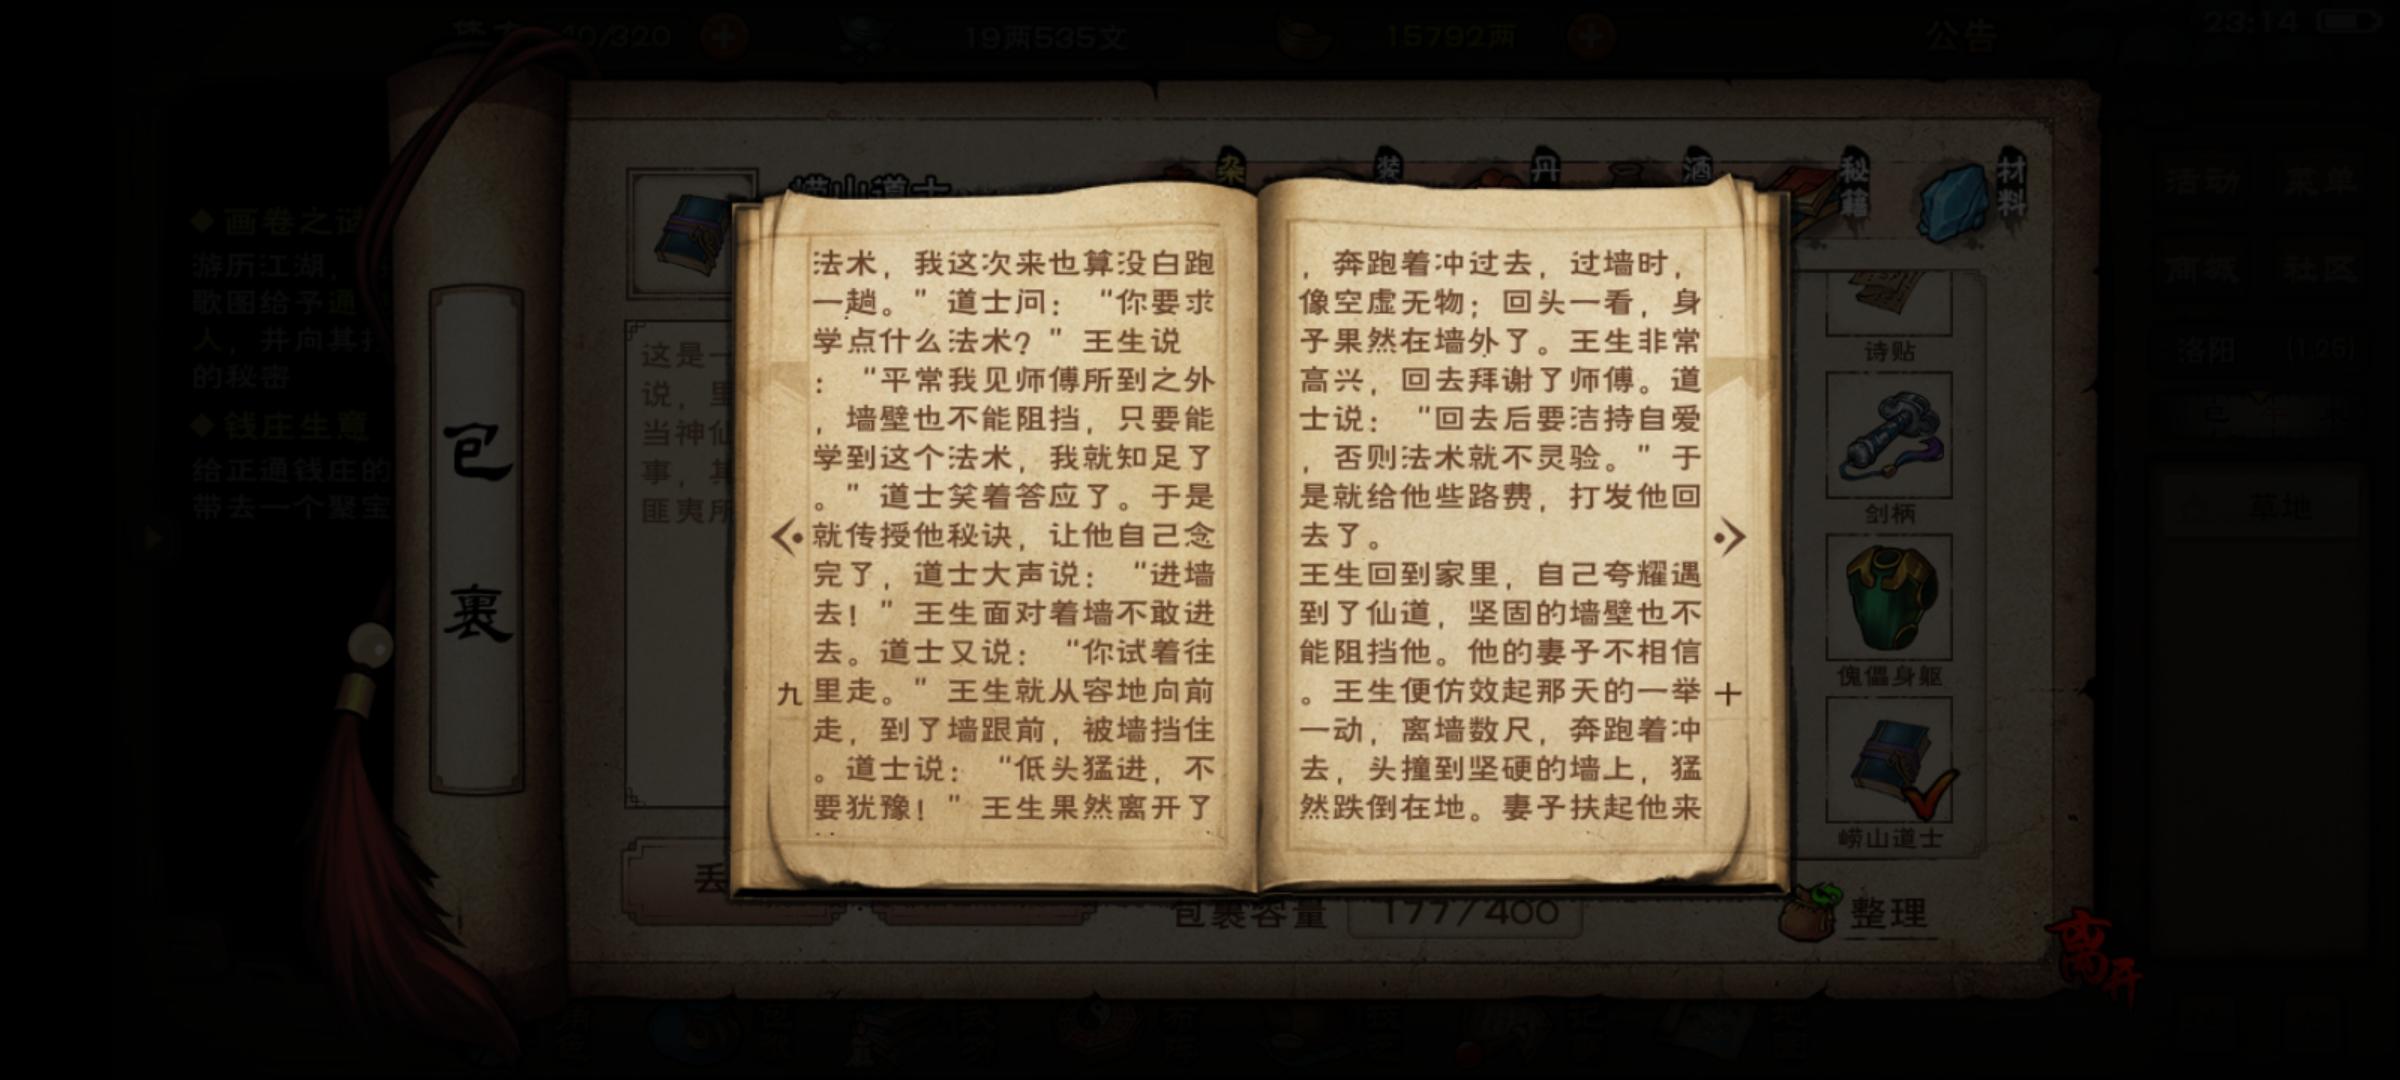 40/320
19两535文
15792两
公告
23:14
画卷之谜
游历江湖，
歌图给予通
人，并向其打
的秘密
钱庄生意
给正通钱庄的
带去一个聚宝
包裹
崂山道士
杂
装
丹
酒
秘籍
材料
这是一
说，里
当神仙
事，其
匪夷所
法术，我这次来也算没白跑
一趟。”道士问：“你要求
学点什么法术？”王生说
：“平常我见师傅所到之外
，墙壁也不能阻挡，只要能
学到这个法术，我就知足了
。”道士笑着答应了。于是
就传授他秘诀，让他自己念
完了，道士大声说：“进墙
去！”王生面对着墙不敢进
去。道士又说：“你试着往
里走。”王生就从容地向前
走，到了墙跟前，被墙挡住
。道士说：“低头猛进，不
要犹豫！”王生果然离开了
九
，奔跑着冲过去，过墙时，
像空虚无物；回头一看，身
子果然在墙外了。王生非常
高兴，回去拜谢了师傅。道
士说：“回去后要洁持自爱
，否则法术就不灵验。”于
是就给他些路费，打发他回
去了。
王生回到家里，自己夸耀遇
到了仙道，坚固的墙壁也不
能阻挡他。他的妻子不相信
。王生便仿效起那天的一举
一动，离墙数尺，奔跑着冲
去，头撞到坚硬的墙上，猛
然跌倒在地。妻子扶起他来
十
诗贴
剑柄
傀儡身躯
崂山道士
丢
包裹容量
177/400
整理
离开
活动
菜单
商城
社区
洛阳
(1,25)
草地